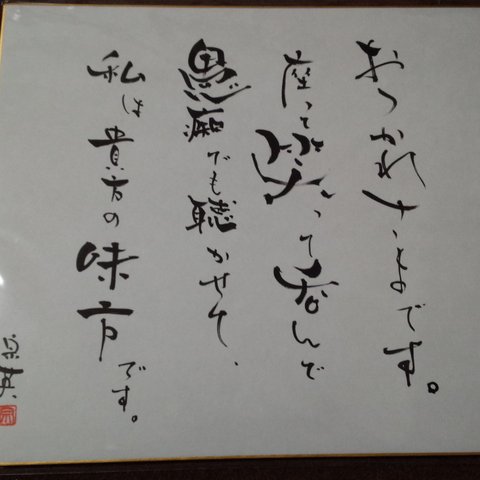 おつかれさまです。
座って笑って呑んで
愚痴でも聴かせて、
私は貴方の味方です。